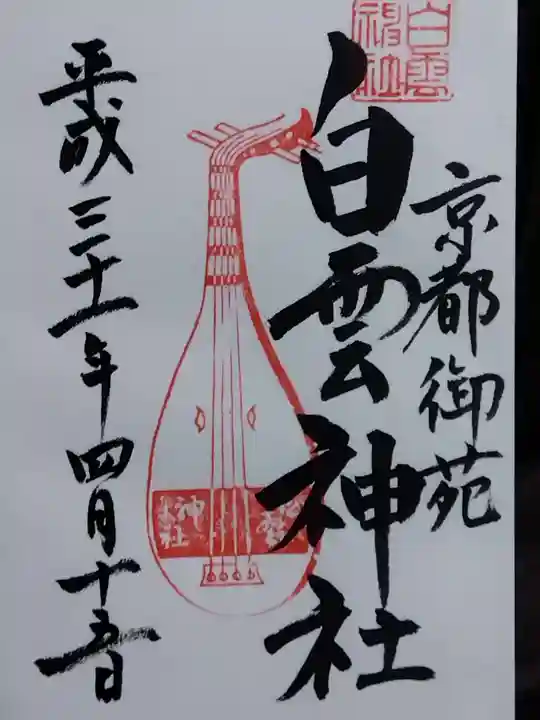 京都御苑
白雲神社
白雲
神社
平成三十一年四月十五日